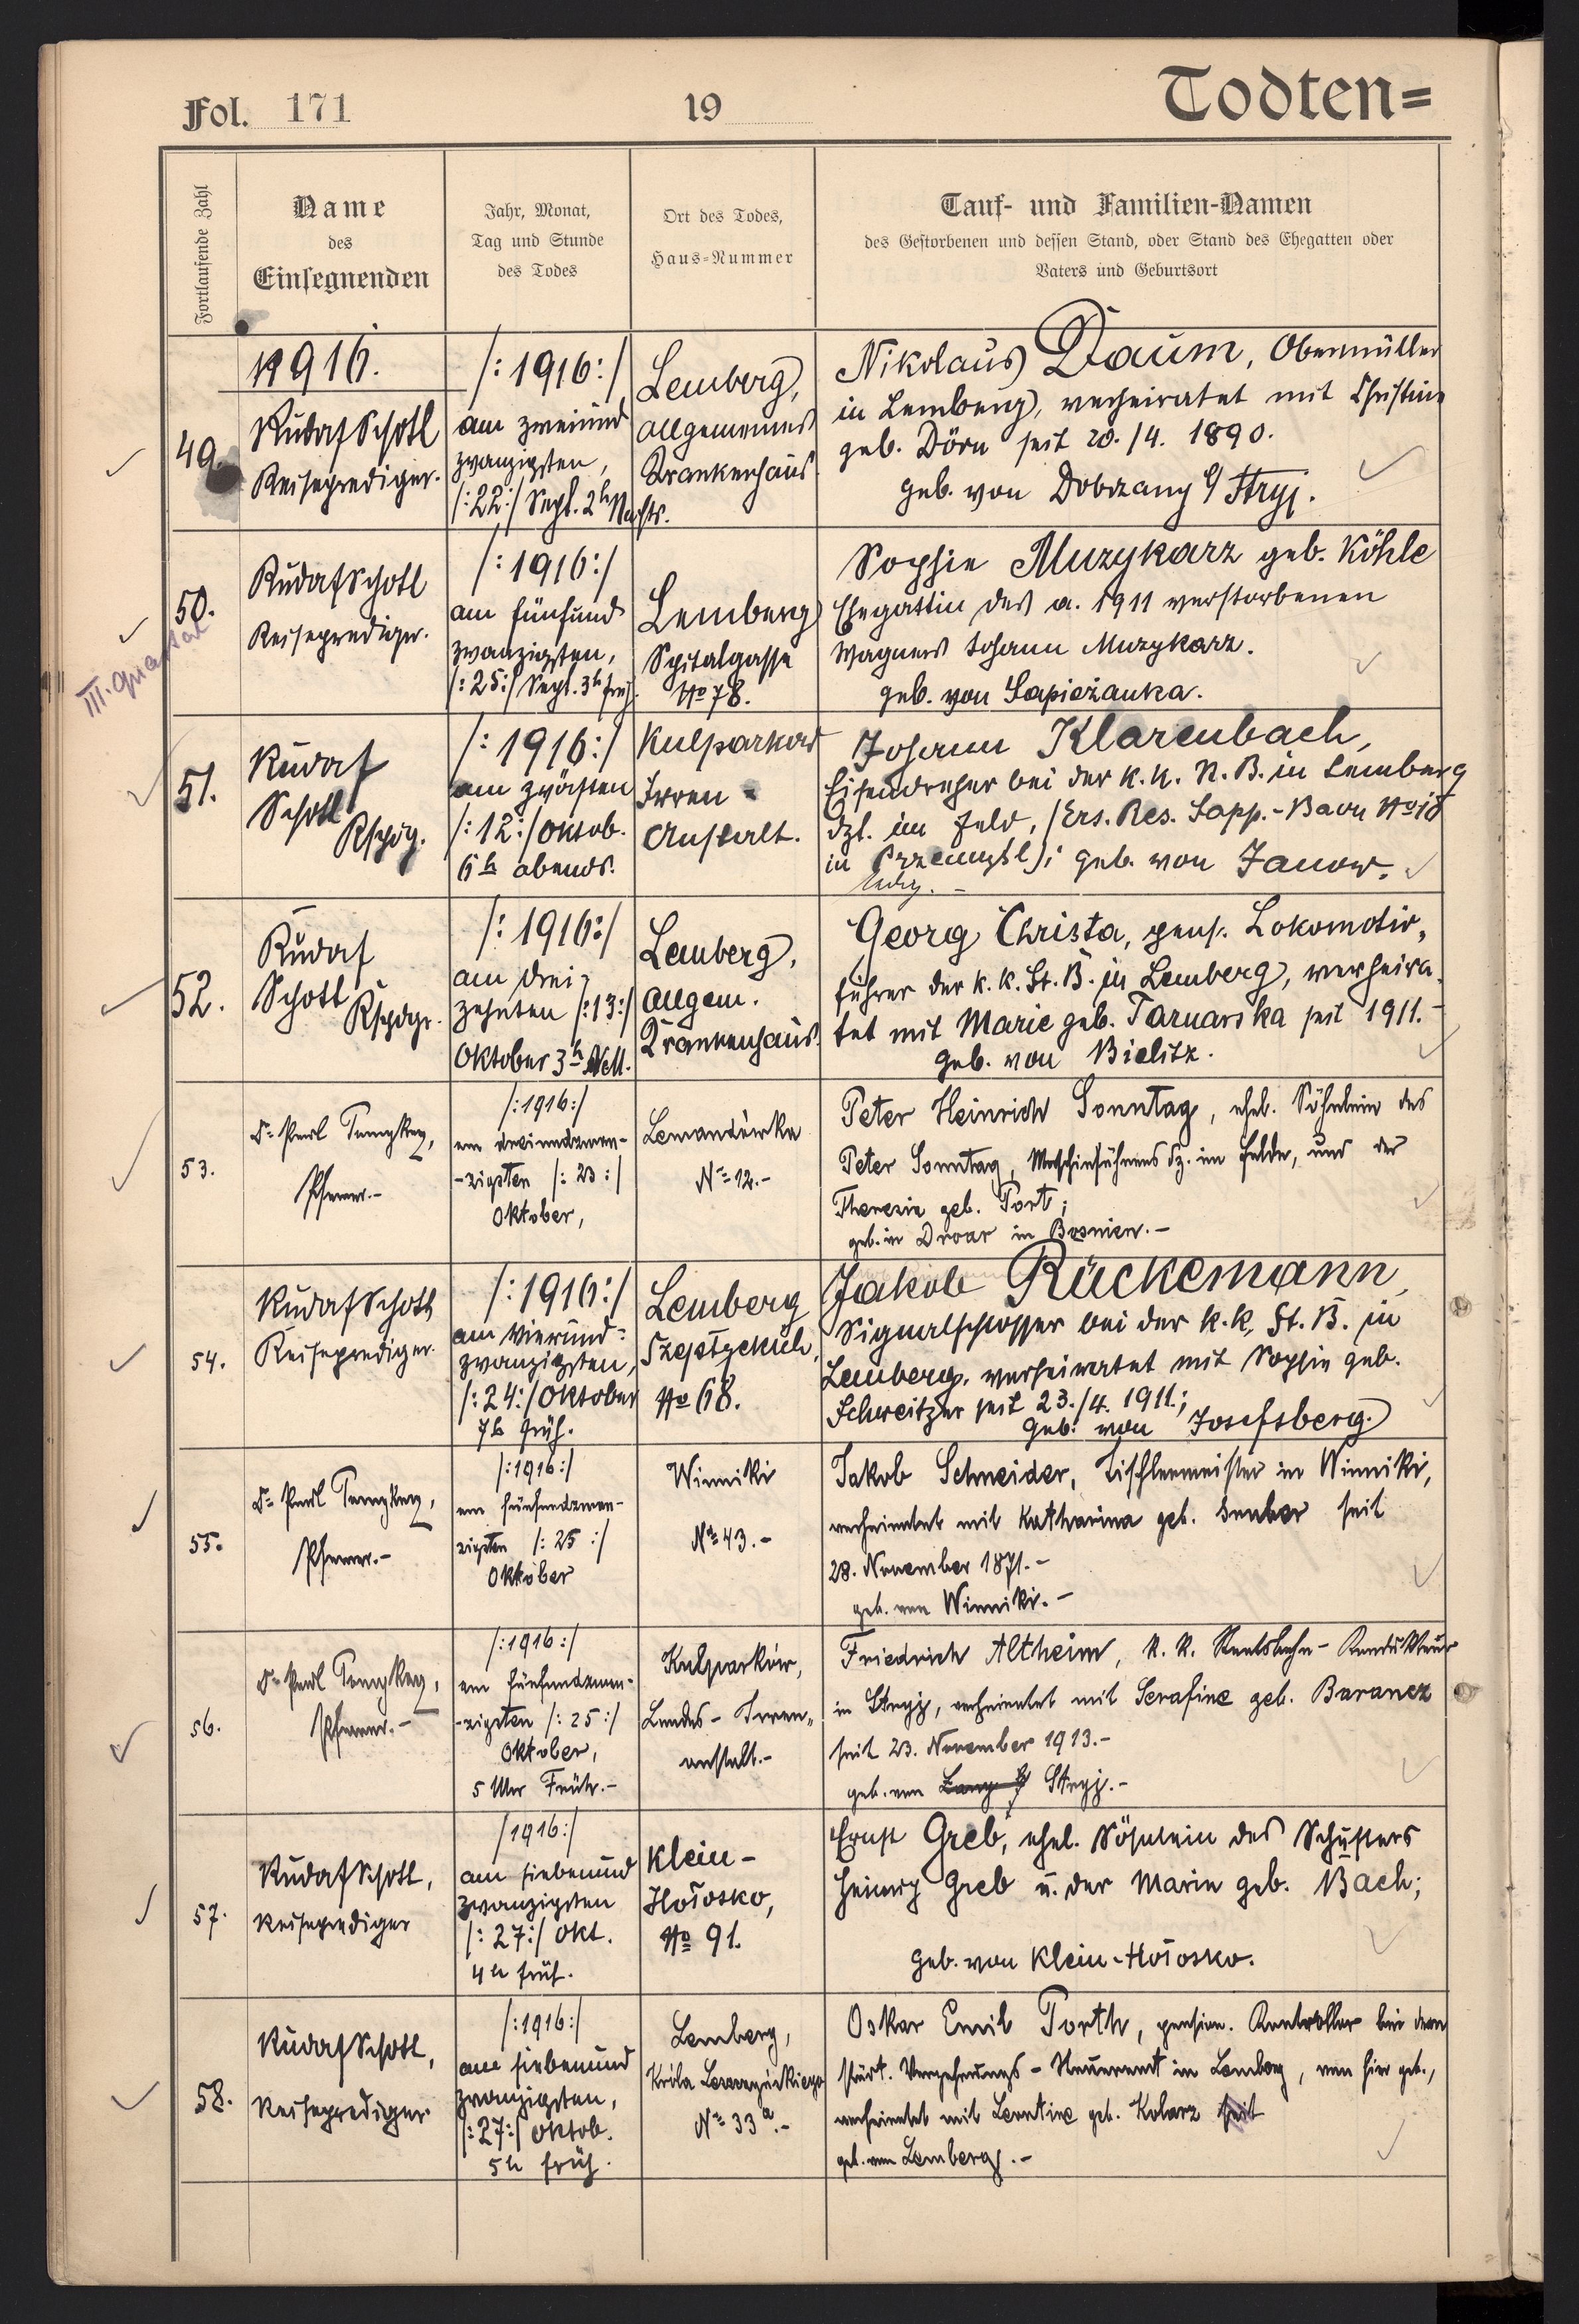 Fol. 171
19
Todten=
Fortlaufende Zahl
Name
des
Einsegnenden
Jahr, Monat,
Tag und Stunde
des Todes
Ort des Todes,
Haus-Nummer
Tauf- und Familien-Namen
des Gestorbenen und dessen Stand, oder Stand des Ehegatten oder
Vaters und Geburtsort
1916.
49.
Rudolf Schotl
Reiseprediger.
/:1916:/
am zweiund
zwanzigsten,
/:22:/ Sept. 2h Nachts.
Lemberg,
Allgemeines
Krankenhaus
Nikolaus Daum, Obermüller
in Lemberg, verheiratet mit Christine
geb. Dörn seit 20./4. 1890.
geb. von Dobrzany b/ Stryj.
III. Quartal
50.
Rudolf Schotl
Reiseprediger.
/:1916:/
am fünfund
zwanzigsten,
/:25:/ Sept. 3h früh.
Lemberg
Spitalgasse
No 78.
Sophie Muzykarz geb. Köhle
Ehegattin des a. 1911 verstorbenen
Wagners Johann Muzykarz.
geb. von Sapieżanka.
51.
Rudolf
Schotl
Rspdg.
/:1916:/
am zwölften
/:12:/ Oktob.
6h abends.
Kulparkow
Irren-
Anstalt.
Johann Klarenbach,
Eisendreher bei der k.k. St. B. in Lemberg
dzt. im Feld, (Ers. Res. Sapp.-Baon No 10
in Przemyśl); geb. von Janow.
ledig. -
52.
Rudolf
Schotl
Rspdgr.
/:1916:/
am drei-
zehnten /:13:/
Oktober 3h N.M.
Lemberg,
Allgem.
Krankenhaus
Georg Christa, pens. Lokomotiv-
führer der k.k. St. B. in Lemberg, verheira-
tet mit Marie geb. Tarnawska seit 1911.-
geb. von Bielitz.
53.
Pfarrer.-
/:1916:/
am dreiundzwan-
-zigsten /:23:/
Oktober,
Lewandówka
No 12.-
Peter Heinrich Sonntag, ehel. Söhnlein des
Peter Sonntag, Maschinführers dz. im Felde, und der
Theresia geb. Port;
geb. in Drvar in Bosnien.-
54.
Rudolf Schotl
Reiseprediger.
/:1916:/
am vierund-
zwanzigsten,
/:24:/ Oktober
7h früh.
Lemberg
Szeptyckich,
No 68.
Jakob Rückemann,
Signalschlosser bei der k.k. St. B. in
Lemberg, verheiratet mit Sophie geb.
Schweitzer seit 23./4. 1911.;
geb. von Josefsberg.
55.
Pfarrer.-
/:1916:/
am fünfundzwan-
zigsten /:25:/
Oktober
Winniki
No 43.-
Jakob Schneider, Tischlermeister in Winniki,
verheiratet mit Katharina geb. seit
28. November 1871.-
geb. von Winniki.-
56.
Pfarrer.-
/:1916:/
am fünfundzwan-
-zigsten /:25:/
Oktober,
5 Uhr Früh.-
Kulparków,
Landes-Irren-
anstalt.-
Friedrich Altheim, k.k. Staatsbahn-Kondukteur
in Stryj, verheiratet mit Serafine geb. Baranez
seit 23. November 1913.-
geb. von Stryj.-
57.
Rudolf Schotl,
Reiseprediger
/1916:/
am siebenund
zwanzigsten
/:27:/ Okt.
4h früh.
Klein-
Hołosko,
No 91.
Ernst Greb, ehel. Söhnlein des Schusters
Heinrich Greb u. der Marie geb. Bach;
geb. von Klein-Hołosko.
58.
Rudolf Schotl,
Reiseprediger
/:1916:/
am siebenund
zwanzigsten,
/:27:/ Oktob.
5h früh.
Lemberg,
Króla Leszczyńskiego
No 33a.-
Oskar Emil Porth, pension. Kontrollor bei dem
städt. Verzehrungs-Steueramt in Lemberg, von hier geb.,
verheiratet mit Leontine geb. Kolarz seit
geb. von Lemberg.-